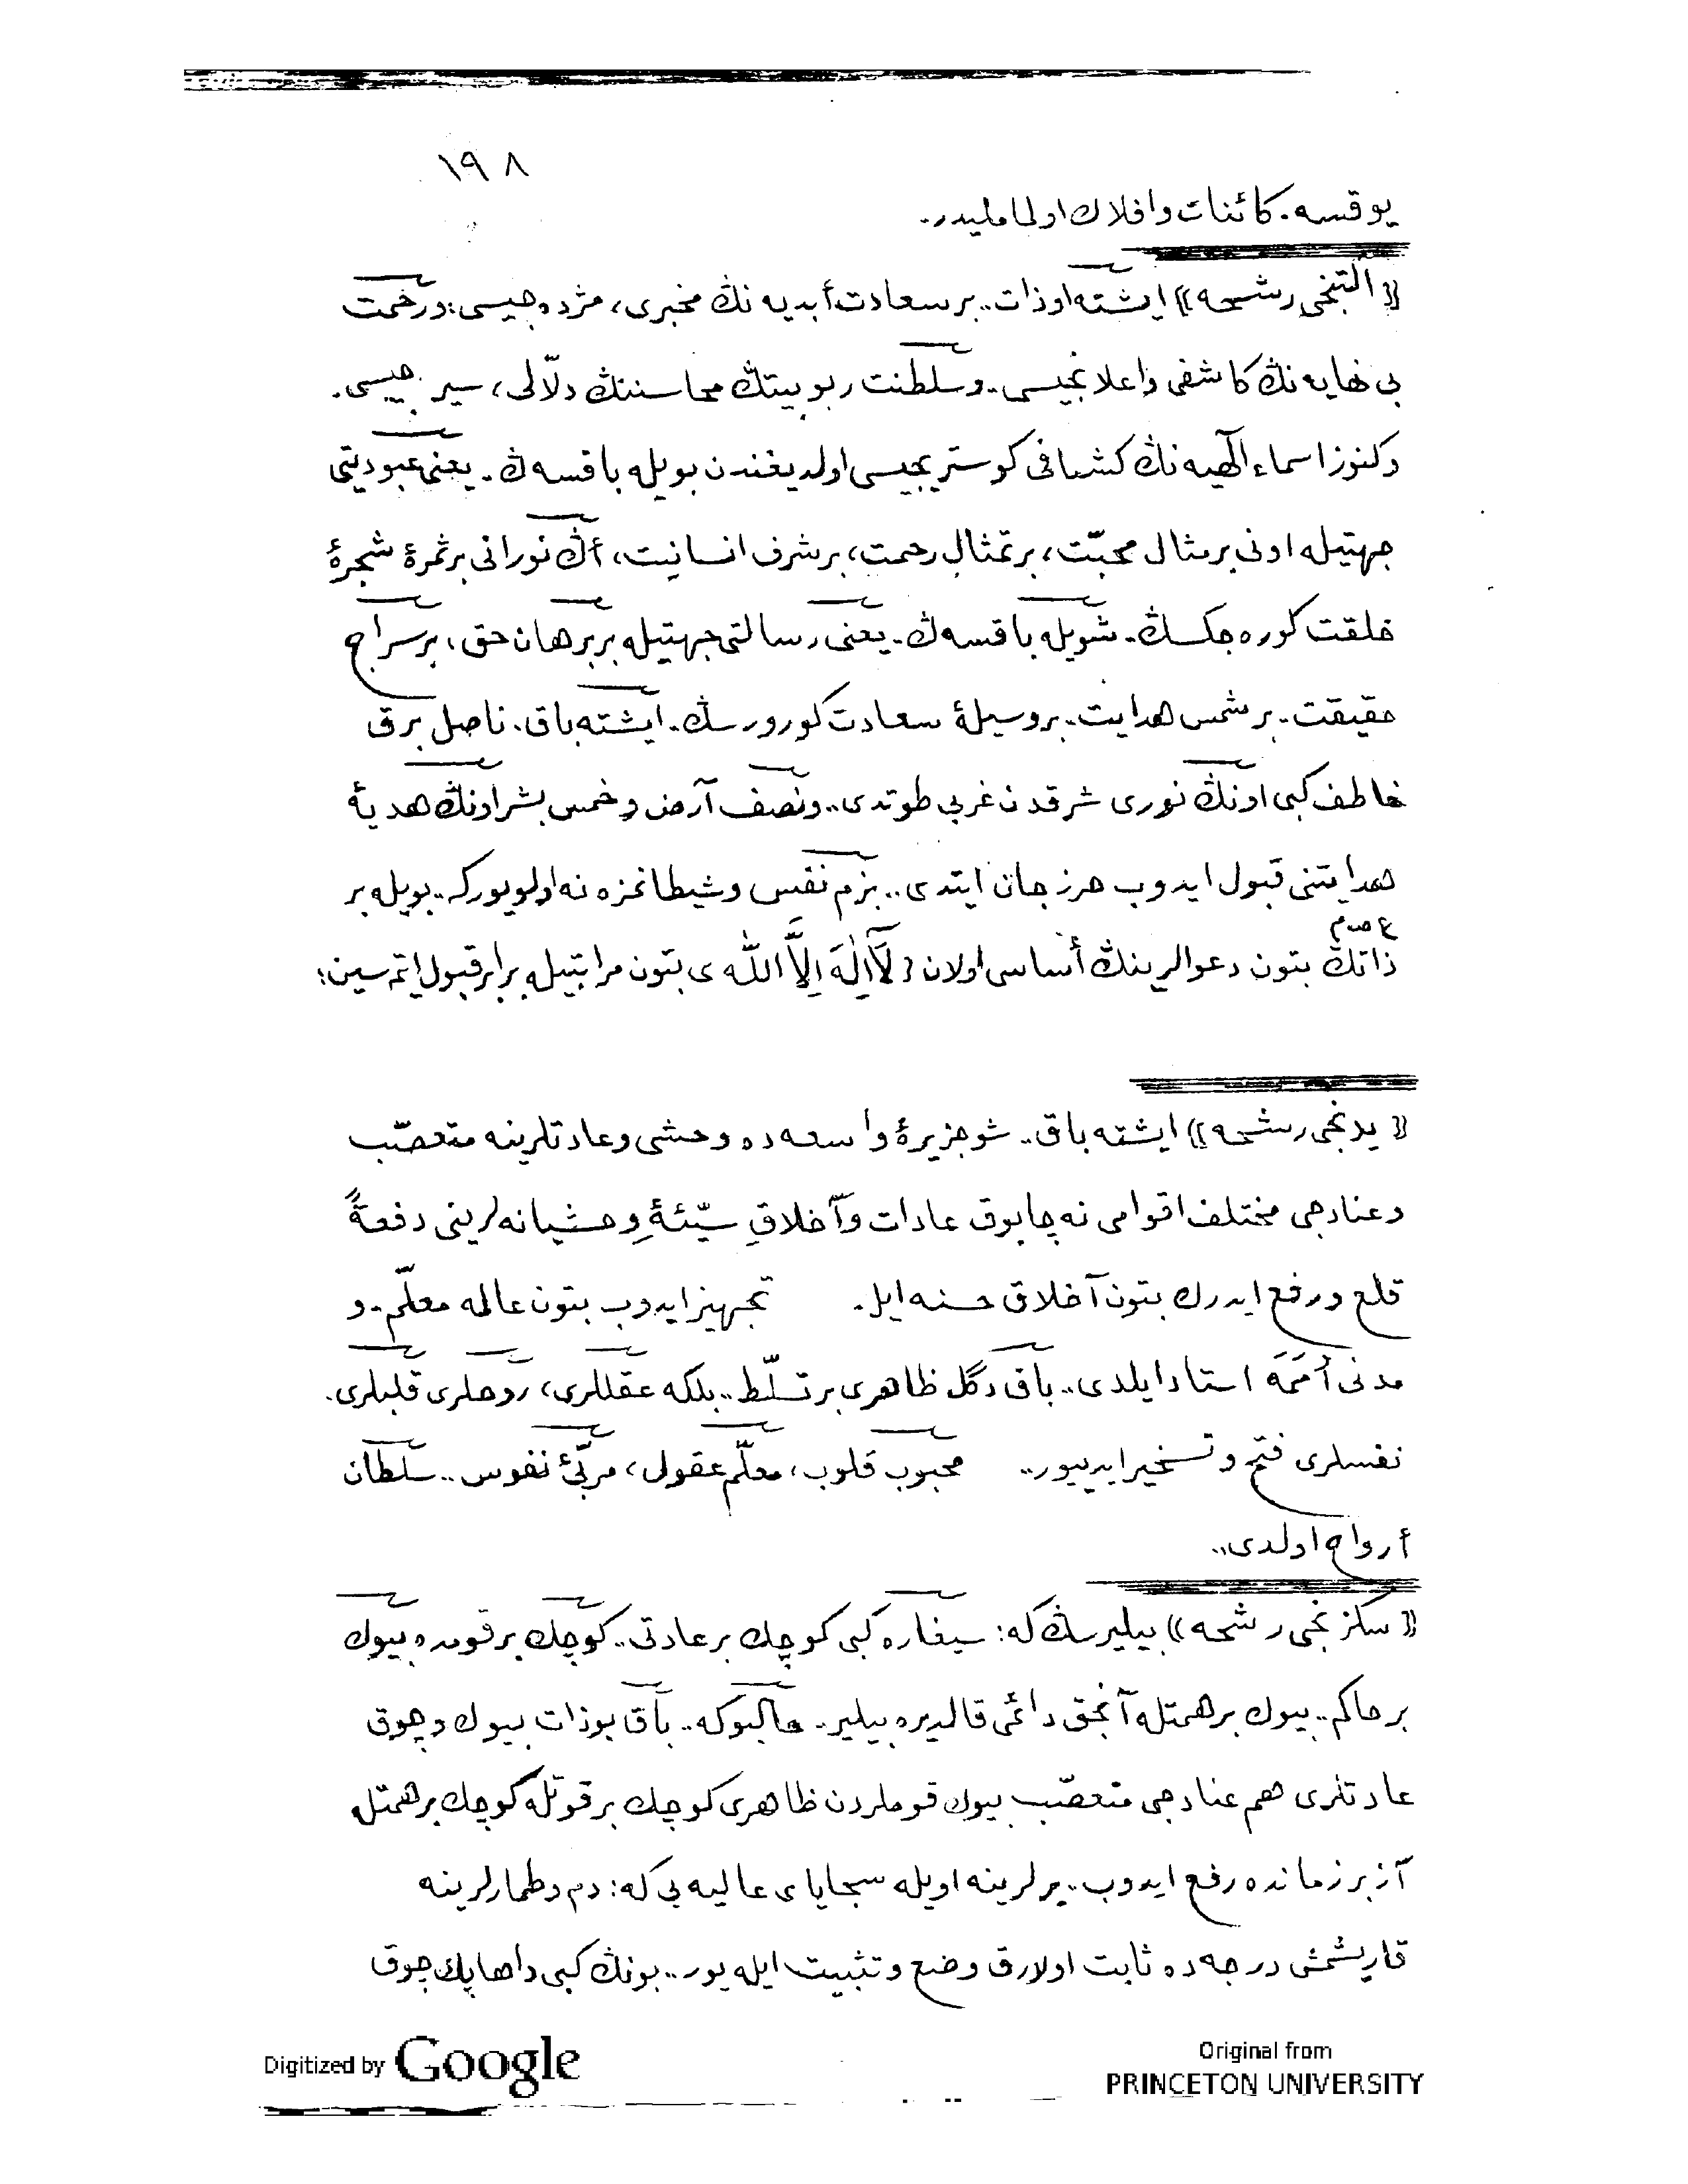 ١٩٨
يوقسه. كائنات وافلاك اولماملیدر.
«التنجی رشحه» ایشته اوذات.. بر سعادت أبدیه نڭ مخبری، مژده جیسی؛ ورحمت
بی نهایه نڭ كاشفی واعلانجیسی.. وسلطنت ربوبیتڭ محاسننڭ دلّالی، سیرجیسی.
وكنوز اسماء الٓهیه نڭ كشافی كوستریجیسی اولدیغندن بویله باقسه ڭ. یعنی عبودیتی
جهتیله اونی بر مثال محبّت، بر تمثال رحمت، بر شرف انسانیت، أڭ نورانی بر ثمرۀ شجرۀ
خلقت كوره جكسڭ. شویله باقسه ڭ. یعنی رسالتی جهتیله بر برهان حق، بر سراج
حقیقت. بر شمس هدایت. بر وسیلۀ سعادت كورورسڭ. ایشته باق. ناصل برق
خاطف كبی اونڭ نوری شرقدن غربی طوتدی.. ونصف آرض وخمس بشر اونڭ هدیۀ
هدایتنی قبول ایدوب حرز جان ایتدی.. بزم نفس وشیطانمزه نه اولویوركه.. بویله بر
ع ص م
ذاتڭ بتون دعوالرینڭ أساسی اولان لَٓا اِلٰهَ اِلَّا اللّٰه ی بتون مراتبیله برابر قبول ایتمسین؛
«یدنجی رشحه» ایشته باق.. شو جزیرۀ واسعه ده وحشی وعادتلرینه متعصّب
وعنادجی مختلف اقوامی نه چابوق عادات وآخلاقِ سیّئۀِ وحشیانه لرینی دفعةً
قلع ورفع ایدرك بتون آخلاق حسنه ایله. تجهیز ایدوب بتون عالمه معلّم. و
مدنی أممَه استاد ایلدی.. باق دگل ظاهری بر تسلّط.. بلكه عقللری، روحلری قلبلری.
نفسلری فتح وتسخیر ایدییور.. محبوب قلوب، معلّم عقول، مربّئ نفوس.. سلطان
أرواح اولدی..
«سكزنجی رشحه» بیلیرسڭ كه: سیغاره كبی كوچك بر عادتی.. كوچك بر قومده بیوك
بر حاكم.. بیوك بر همتله آنجق دائمی قالدیره بیلیر.. حالبوكه.. باق بوذات بیوك وچوق
عادتلری هم عنادجی متعصّب بیوك قوملردن ظاهری كوچك بر قوتله كوچك بر همتله
آز بر زمانده رفع ایدوب.. یرلرینه اویله سجایای عالیه یی كه: دم وطمارلرینه
قاریشمش درجه ده ثابت اولارق وضع وتثبیت ایله یور.. بونڭ كبی داها پك چوق
Digitized by Google
Original from
PRINCETON UNIVERSITY